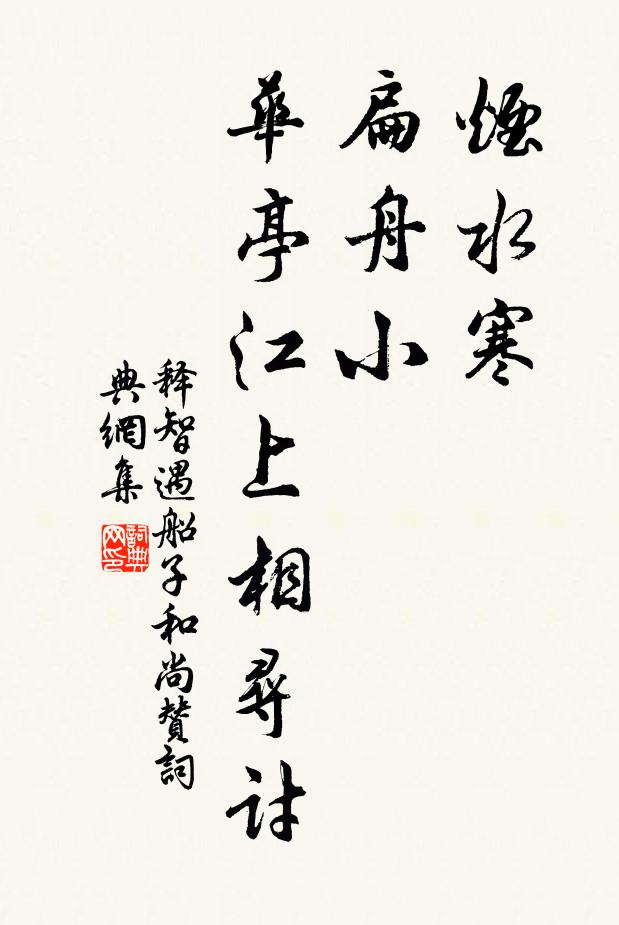 煙水寒
扁舟小
華亭江上相尋討
释智遇船子和尚赞詞
典網集
詞典网印